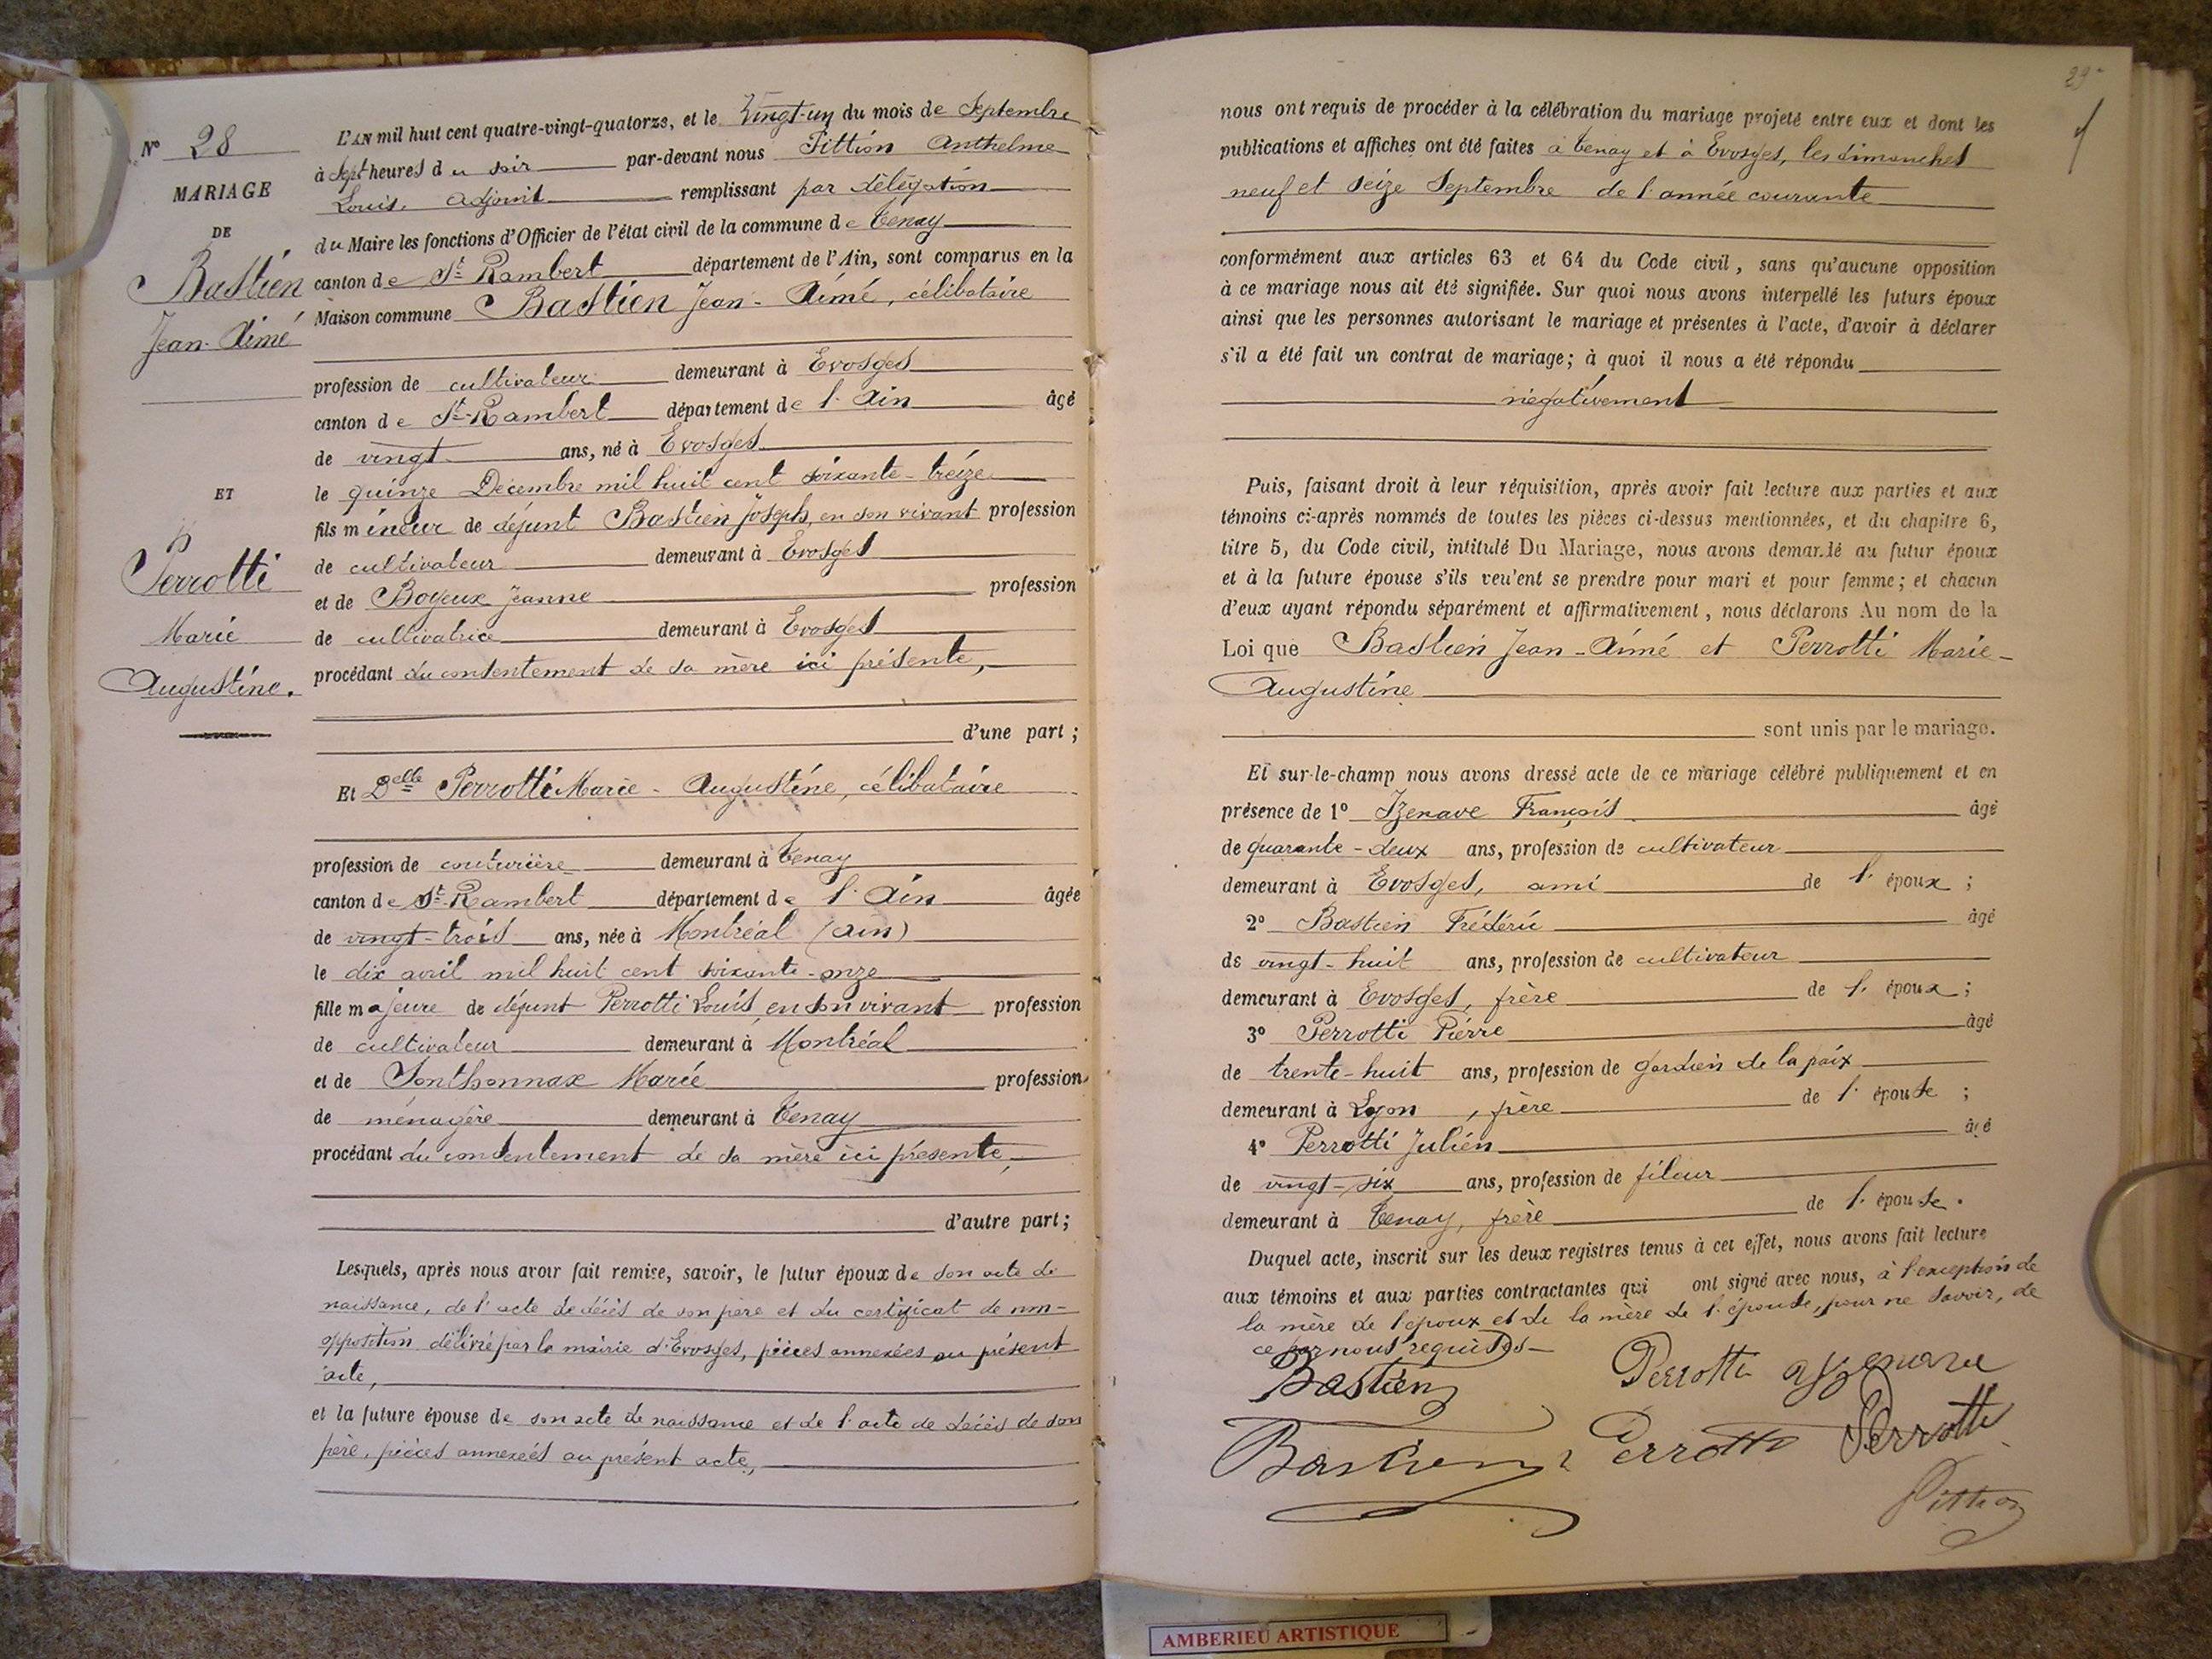 N° 28
MARIAGE
DE
Bastien
Jean-Aimé
ET
Perrotti
Marie
Augustine.
L'AN mil huit cent quatre-vingt-quatorze, et le Vingt-un du mois de Septembre
à Sept heures du soir par-devant nous Pittion Anthelme
Louis, Adjoint remplissant par délégation
du Maire les fonctions d'Officier de l'état civil de la commune de Tenay
canton de St Rambert département de l'Ain, sont comparus en la
Maison commune Bastien Jean-Aimé, célibataire
profession de cultivateur demeurant à Evosges
canton de St-Rambert département de l'Ain âgé
de vingt ans, né à Evosges
le quinze Décembre mil huit cent soixante-treize
fils mineur de défunt Bastien Joseph, en son vivant profession
de cultivateur demeurant à Evosges
et de Boyeux Jeanne profession
de cultivatrice demeurant à Evosges
procédant du consentement de sa mère ici présente,
d'une part ;
Et Delle Perrotti Marie-Augustine, célibataire
profession de couturière demeurant à Tenay
canton de St-Rambert département de l'Ain âgée
de vingt-trois ans, née à Montréal (Ain)
le dix avril mil huit cent soixante-onze
fille majeure de défunt Perrotti Louis, en son vivant profession
de cultivateur demeurant à Montréal
et de Sonthonnax Marie profession
de ménagère demeurant à Tenay
procédant du consentement de sa mère ici présente,
d'autre part ;
Lesquels, après nous avoir fait remise, savoir, le futur époux de son acte de
naissance, de l'acte de décès de son père et du certificat de non-
opposition délivré par la mairie d'Evosges, pièces annexées au présent
acte,
et la future épouse de son acte de naissance et de l'acte de décès de son
père, pièces annexées au présent acte,
29
nous ont requis de procéder à la célébration du mariage projeté entre eux et dont les
publications et affiches ont été faites à Tenay et à Evosges, les dimanches
neuf et seize Septembre de l'année courante
conformément aux articles 63 et 64 du Code civil, sans qu'aucune opposition
à ce mariage nous ait été signifiée. Sur quoi nous avons interpellé les futurs époux
ainsi que les personnes autorisant le mariage et présentes à l'acte, d'avoir à déclarer
s'il a été fait un contrat de mariage; à quoi il nous a été répondu
négativement
Puis, faisant droit à leur réquisition, après avoir fait lecture aux parties et aux
témoins ci-après nommés de toutes les pièces ci-dessus mentionnées, et du chapitre 6,
titre 5, du Code civil, intitulé Du Mariage, nous avons demandé au futur époux
et à la future épouse s'ils veulent se prendre pour mari et pour femme; et chacun
d'eux ayant répondu séparément et affirmativement, nous déclarons Au nom de la
Loi que Bastien Jean-Aimé et Perrotti Marie-
Augustine
sont unis par le mariage.
Et sur-le-champ nous avons dressé acte de ce mariage célébré publiquement et en
présence de 1° Izenave François âgé
de quarante-deux ans, profession de cultivateur
demeurant à Evosges, ami de l'époux ;
2° Bastien Frédéric âgé
de vingt-huit ans, profession de cultivateur
demeurant à Evosges, frère de l'époux ;
3° Perrotti Pierre âgé
de trente-huit ans, profession de gardien de la paix
demeurant à Lyon, frère de l'épouse ;
4° Perrotti Julien âgé
de vingt-six ans, profession de fileur
demeurant à Tenay, frère de l'épouse.
Duquel acte, inscrit sur les deux registres tenus à cet effet, nous avons fait lecture
aux témoins et aux parties contractantes qui ont signé avec nous, à l'exception de
la mère de l'époux et de la mère de l'épouse, pour ne savoir, de
ce par nous requises
Bastien Perrotti
Bastien Perrotti Perrotti
Pittion
AMBERIEU ARTISTIQUE